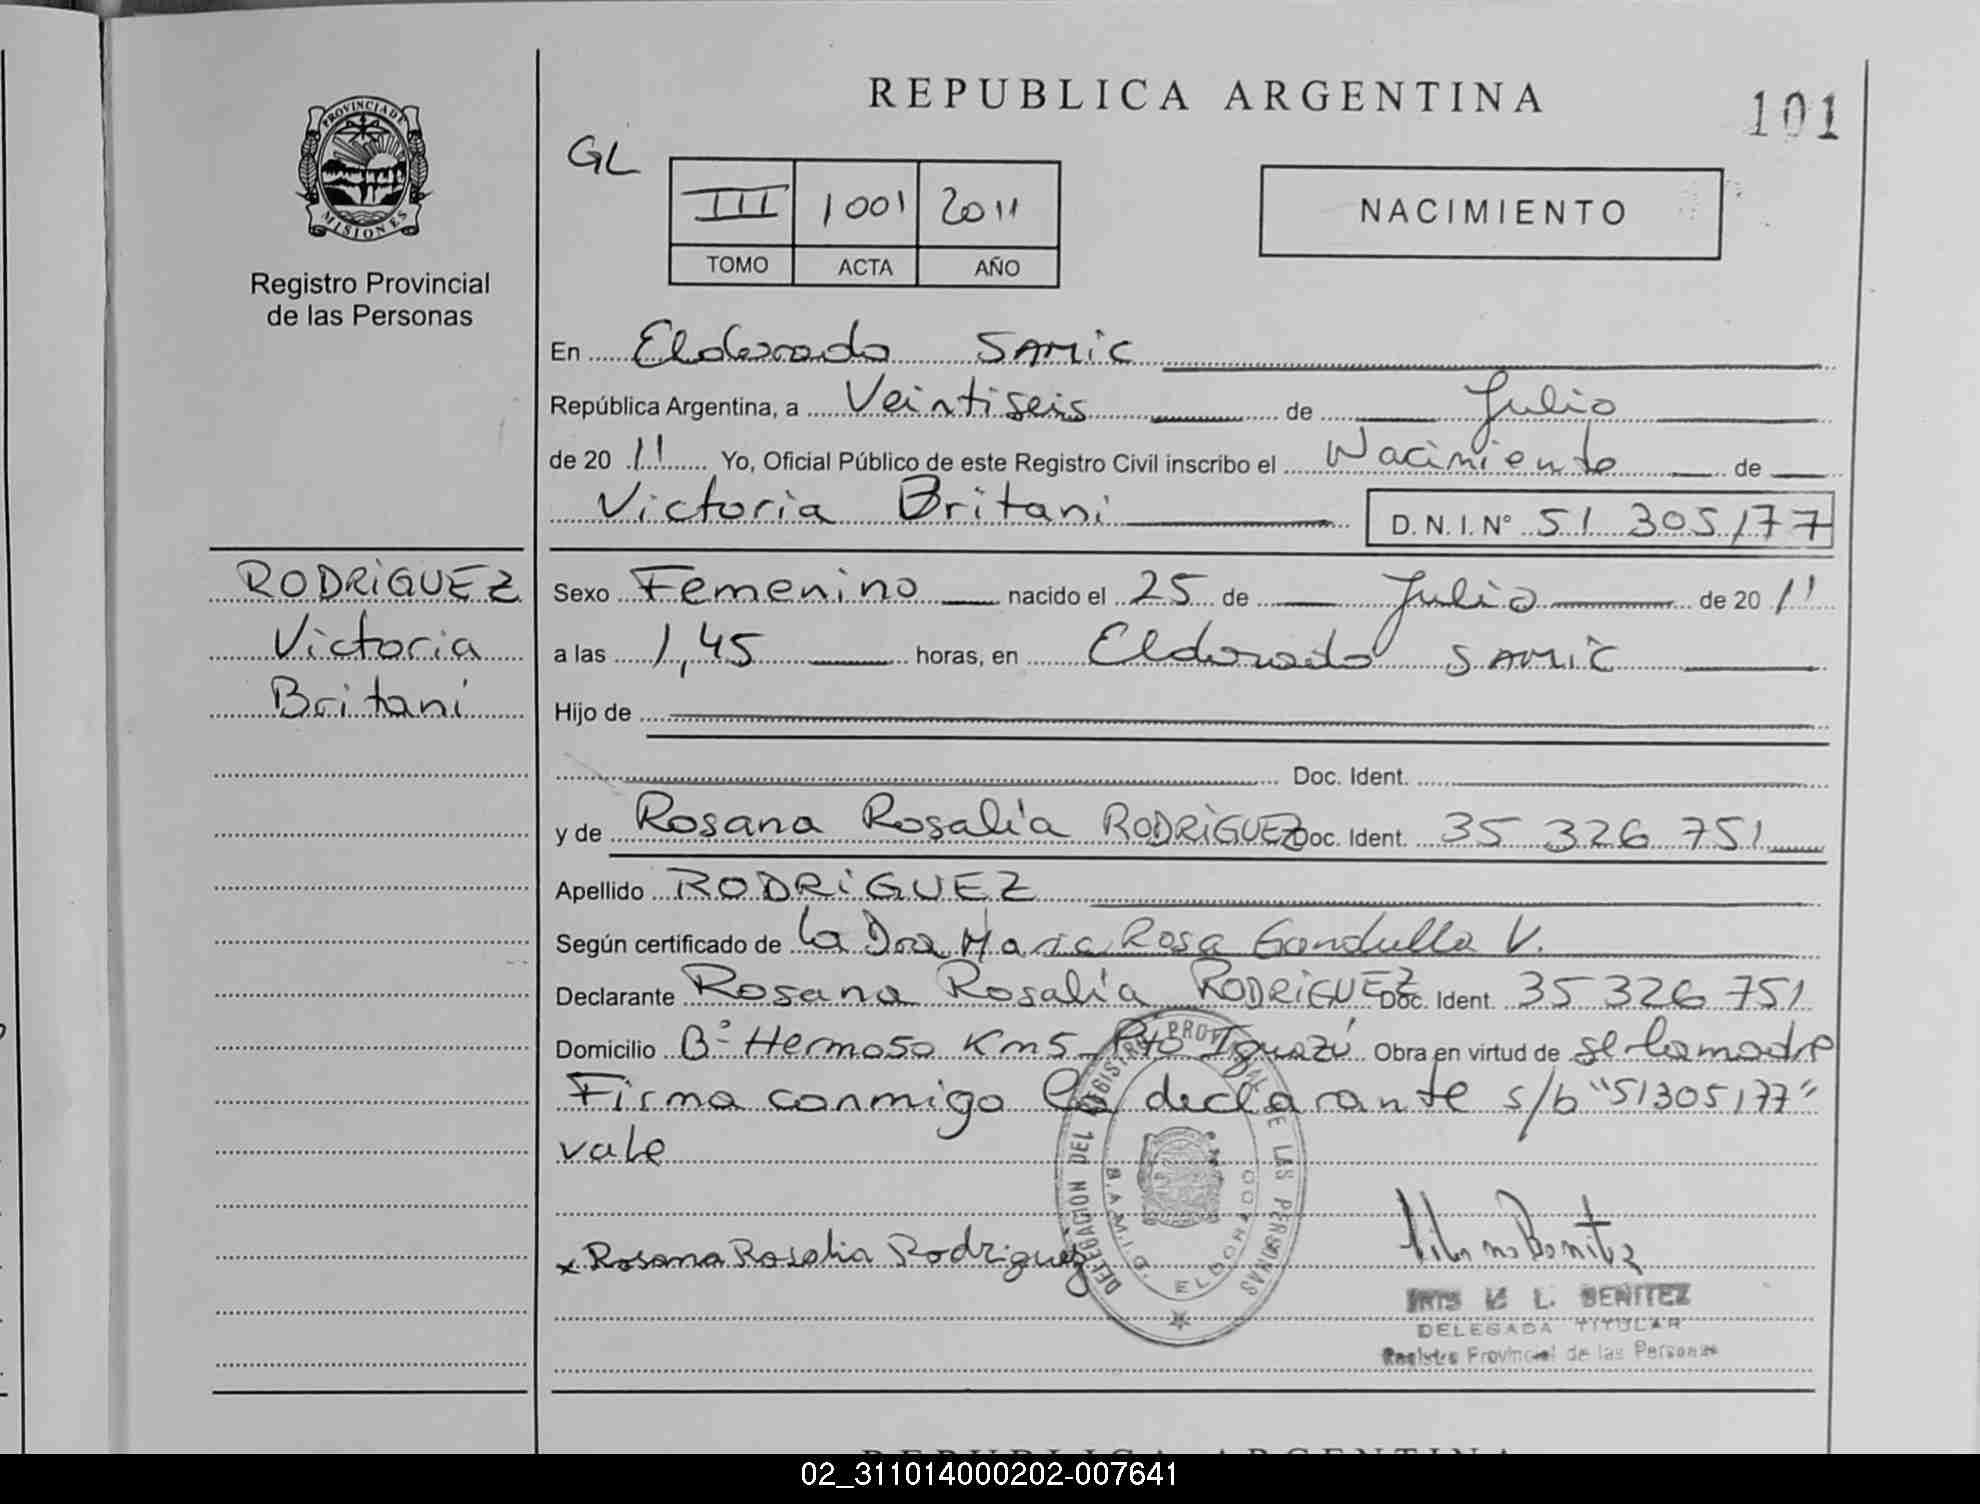 REPUBLICA ARGENTINA
101
PROVINCIA DE
MISIONES
Registro Provincial
de las Personas
GL
III 1001 2011
TOMO ACTA AÑO
NACIMIENTO
En Eldorado SAMIC
República Argentina, a Veintiseis de Julio
de 20 11 Yo, Oficial Público de este Registro Civil inscribo el Nacimiento de
Victoria Britani D.N.I.Nº 51 305177
RODRIGUEZ
Victoria
Britani
Sexo Femenino nacido el 25 de Julio de 20 11
a las 1,45 horas, en Eldorado SAMIC
Hijo de
Doc. Ident.
y de Rosana Rosalía RODRIGUEZ Doc. Ident. 35 326 751
Apellido RODRIGUEZ
Según certificado de la Dra Maria Rosa Gandulla V.
Declarante Rosana Rosalía RODRIGUEZ Doc. Ident. 35 326 751
Domicilio Bº Hermoso Km5 Pto Iguazú Obra en virtud de se la madre
Firma conmigo la declarante s/b "51305177"
vale
x Rosana Rosalia Rodriguez
DELEGACION DEL REGISTRO PROVINCIAL DE LAS PERSONAS
ELDORADO
L. BENITEZ
DELEGADA TITULAR
Registro Provincial de las Personas
REPUBLICA ARGENTINA
02_311014000202-007641